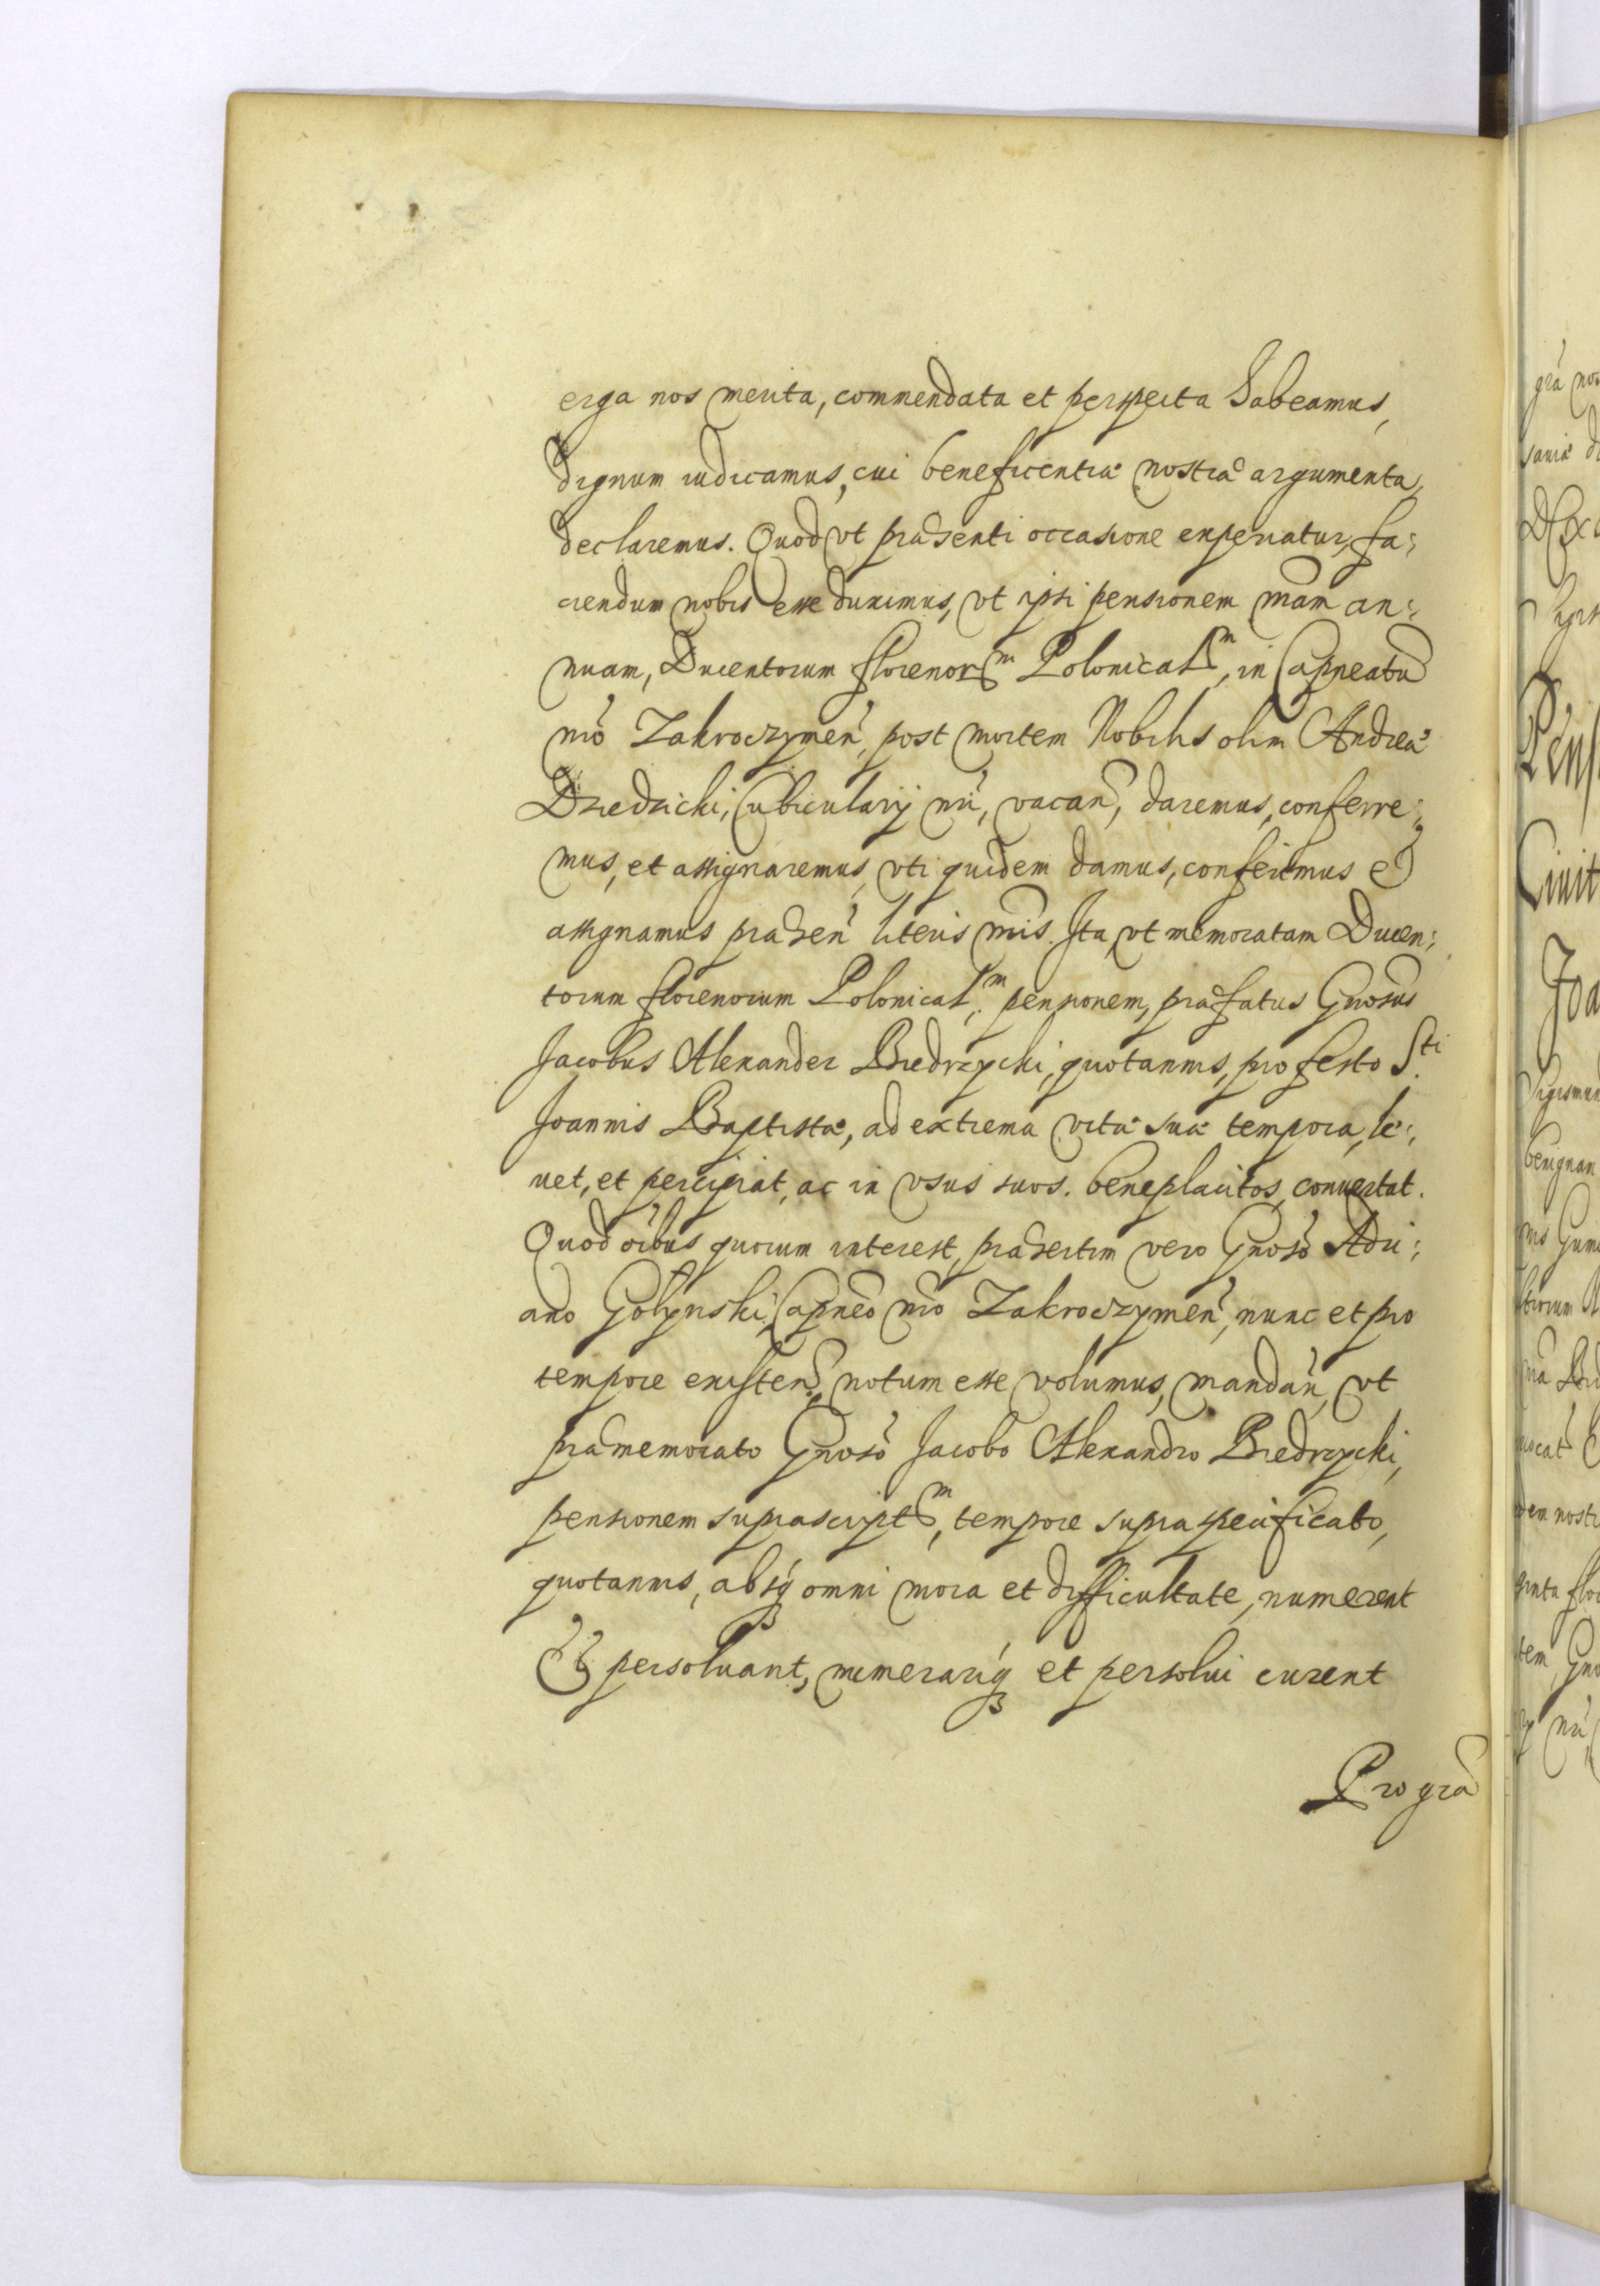 erga nos merita, commendata et perspecta habeamus,
dignum iudicamus, cui beneficentiæ nostræ argumenta
declaremus. Quod vt præsenti occasione experiatur, fa:
ciendum nobis esse duximus, vt ipsi pensionem nr̃am an:
nuam, Ducentorum florenor᷈ᵐ Polonical᷈ᵐ, in Capneatũ
nrõ Zakroczymeñ, post mortem Nobilis olim Andreæ
Dziedzicki, Cubicularij nri̇̃, vacañ, daremus, conferre:
mus, et assignaremus, vti quidem damus, conferimus et
assignamus præseñ literis nr̃is. Ita vt memoratam Ducen:
torum florenorum Polonical᷈ᵐ pensionem, præfatus Gnosũs
Jacobus Alexander Biedrzycki, quotannis, pro festo S.ᵗⁱ
Joannis Baptistæ, ad extrema vitæ suæ tempora, le:
uet, et percipiat, ac in vsus suos beneplacitos, conuertat.
Quod oĩbus quorum interest, præsertim vero Gnosõ Adri:
ano Gołyński, Capneõ nrõ Zakroczymeñ, nunc et pro
tempore existeñ, notum esse volumus, mandañ, vt
præmemorato Gnosõ Jacobo Alexandro Biedrzycki,
pensionem suprascriptᵐ, tempore supra specificato,
quotannis, absq́ȝ omni mora et difficultate, numerent
et persoluant, numerariq́ȝ et persolui curent
Pro grã